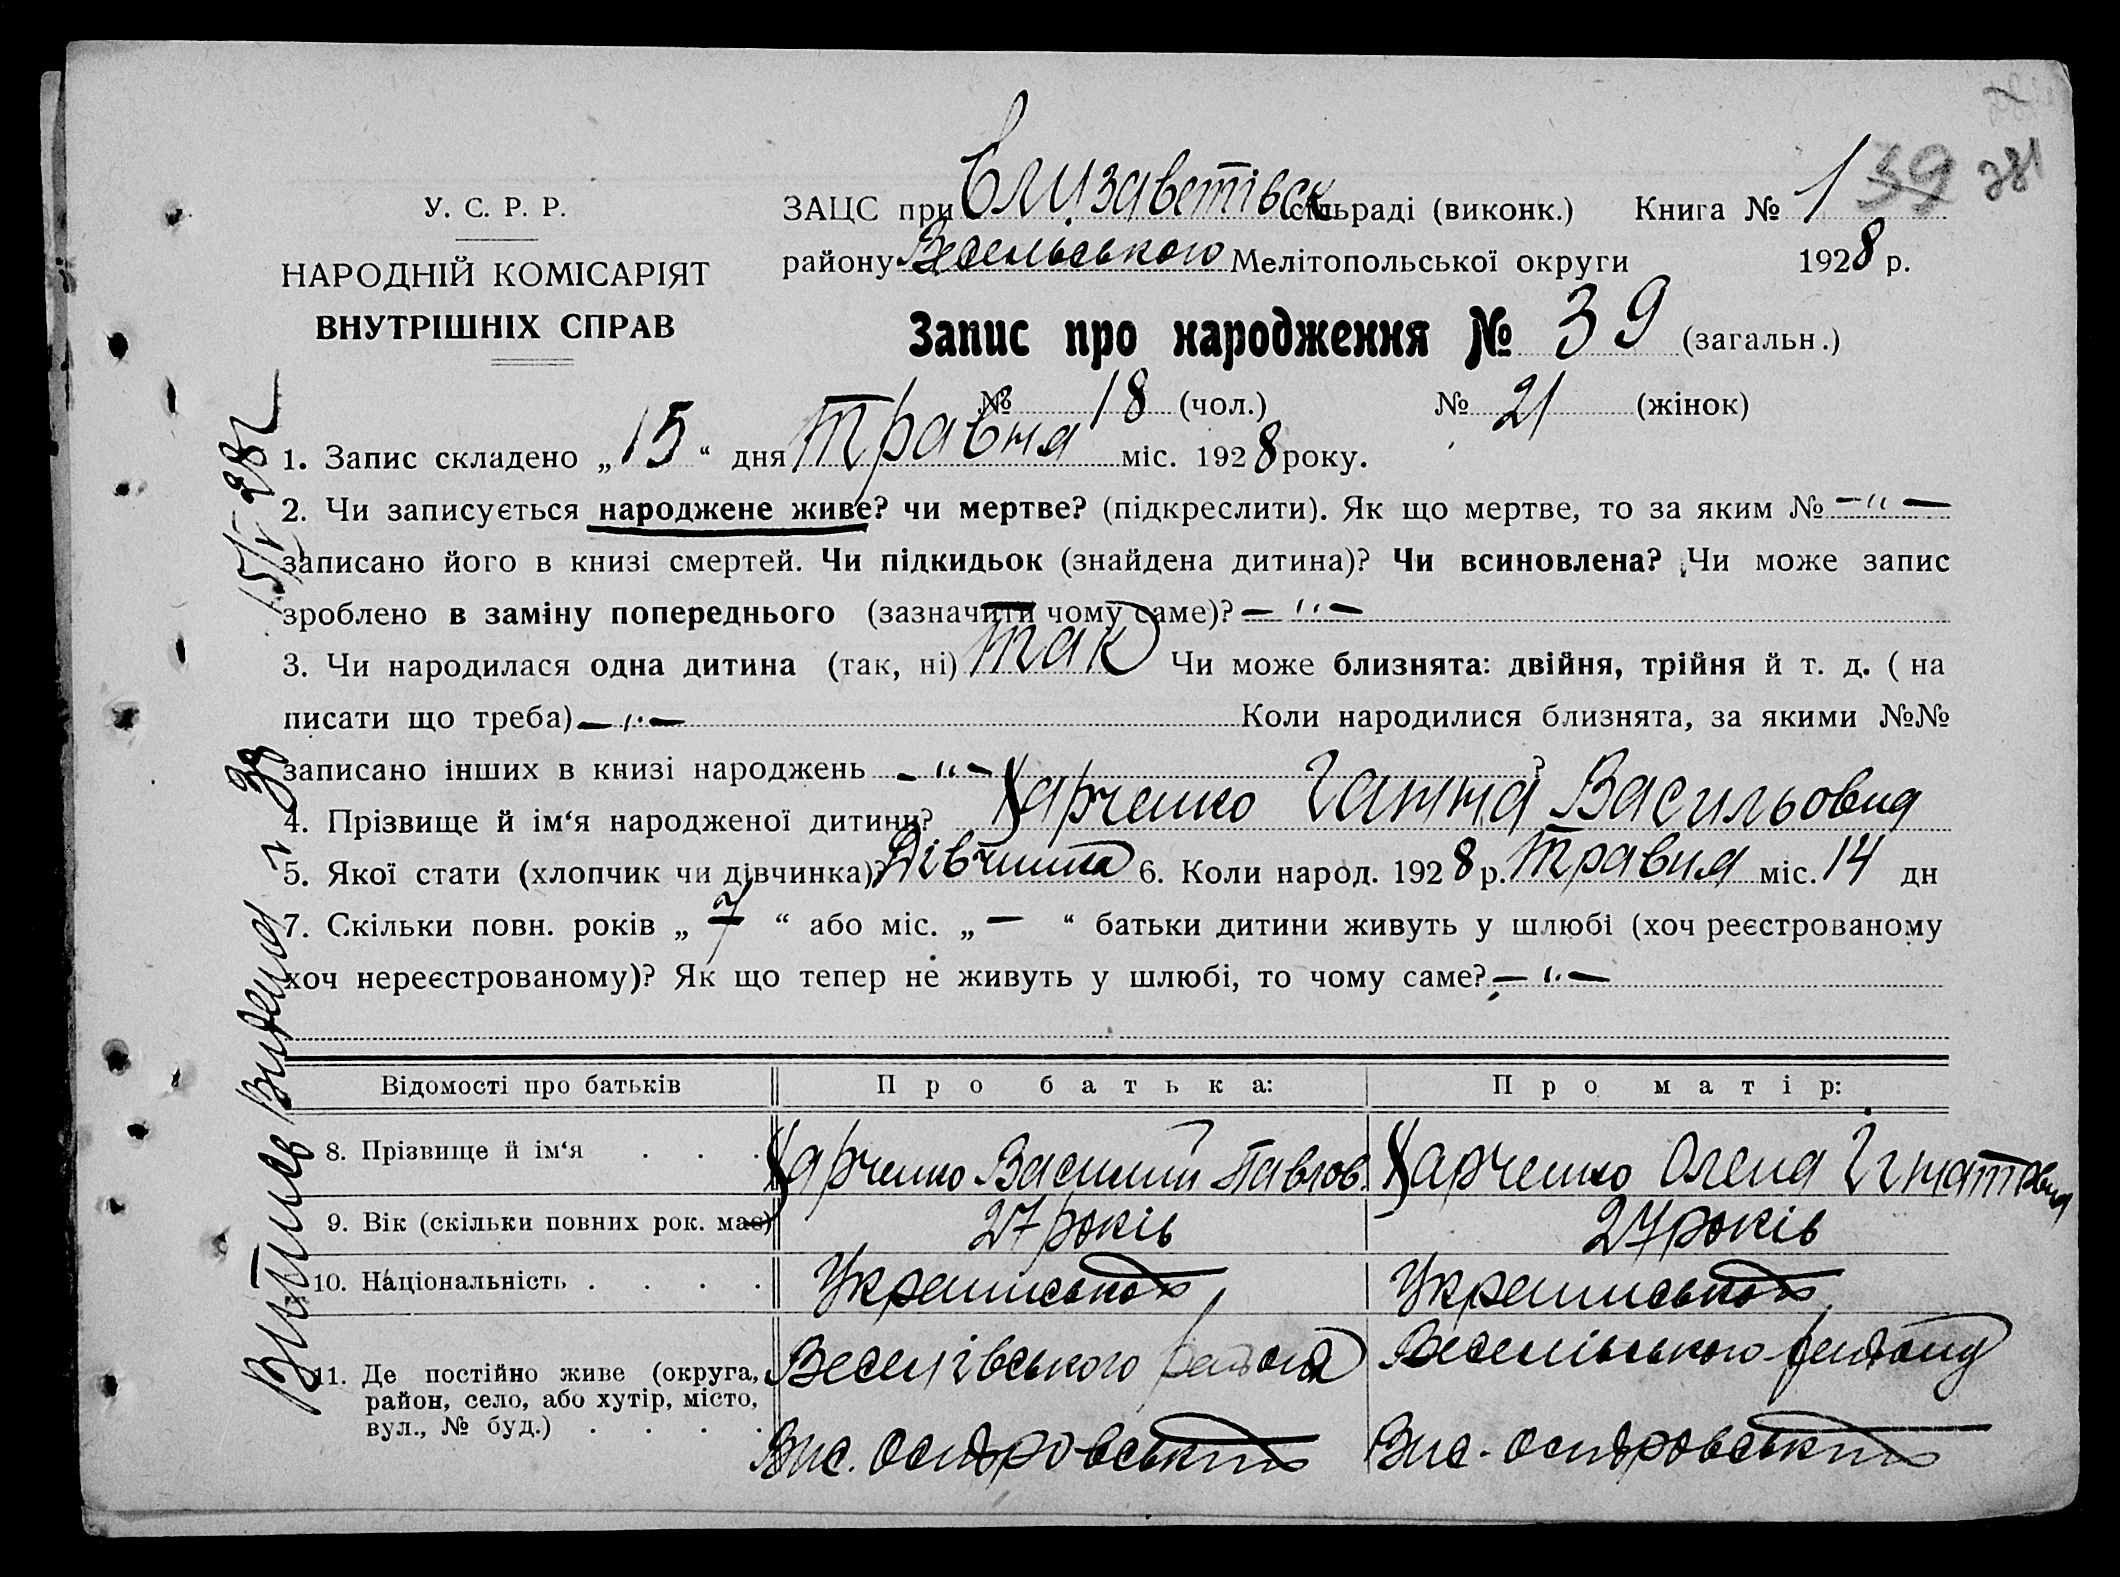 39 381
У. С. Р. Р.
НАРОДНІЙ КОМІСАРІЯТ
ВНУТРІШНІХ СПРАВ
ЗАЦС при Єлизаветівськ сільраді (виконк.) Книга № 1
району Веселівського Мелітопольської округи 1928 р.
Запис про народження № 39 (загальн.)
№ 18 (чол.) № 21 (жінок)
1. Запис складено „15“ дня травня міс. 1928 року.
2. Чи записується народжене живе? чи мертве? (підкреслити). Як що мертве, то за яким № —"—
записано його в книзі смертей. Чи підкидьок (знайдена дитина)? Чи всиновлена? Чи може запис
зроблено в заміну попереднього (зазначити чому саме)? —"—
3. Чи народилася одна дитина (так, ні) так Чи може близнята: двійня, трійня й т. д. ( на
писати що треба) —"— Коли народилися близнята, за якими №№
записано інших в книзі народжень —"— ?
4. Прізвище й ім‘я народженої дитини? Харченко Ганна Васильовна
5. Якої стати (хлопчик чи дівчинка)? Дівчинка 6. Коли народ. 1928 р. травня міс. 14 дн
7. Скільки повн. років „7“ або міс. „—“ батьки дитини живуть у шлюбі (хоч реєстрованому
хоч нереєстрованому)? Як що тепер не живуть у шлюбі, то чому саме? —"—
Відомості про батьків Про батька: Про матір:
8. Прізвище й ім‘я . . . Харченко Василий Павлов. Харченко Олена Ігнатовна
9. Вік (скільки повних рок. має) 27 років 27 років
10. Національність . . . . Украінськой Украінськой
11. Де постійно живе (округа, район, село, або хутір, місто, вул., № буд.) . . . . Веселівського району Веселівського району
Вис. Островський Вис. Островський
Витпись Видена 39 15/V 28